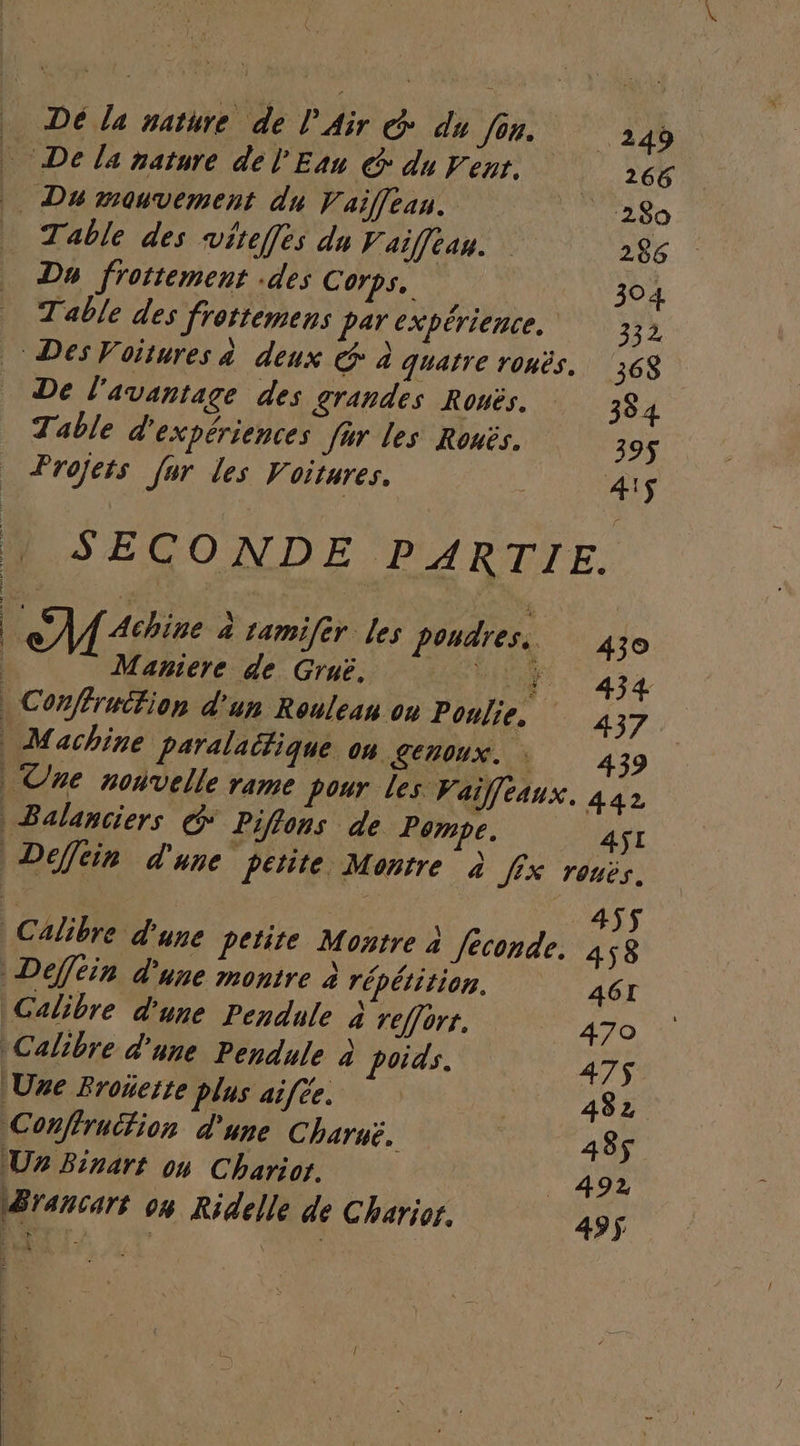 De la nature de l'Air & du ſon. 249
De la nature de l'Eau & du Vent. 266
Du mouvement du Vaiſſeau. 280
Table des viteſſes du Vaiſſeau. 286
Du frottement des Corps. 304
Table des frottemens par expérience. 332
Des Voitures à deux & à quatre rouës. 368
De l'avantage des grandes Rouës. 384
Table d'expériences ſur les Rouës. 395
Projets ſur les Voitures. 415
SECONDE PARTIE.
MAchine à tamiſer les poudres. 430
Maniere de Gruë. 434
Conſtruction d'un Rouleau ou Poulie. 437
Machine paralactique ou genoux. 439
Une nouvelle rame pour les Vaiſſeaux. 442
Balanciers & Piſtons de Pompe. 451
Deſſein d'une petite Montre à ſix rouës.
455
Calibre d'une petite Montre à ſeconde. 458
Deſſein d'une montre à répétition. 461
Calibre d'une Pendule à reſſort. 470
Calibre d'une Pendule à poids. 475
Une Broüette plus aiſée. 482
Conſtruction d'une Charuë. 485
Un Binart ou Chariot. 492
Brancart ou Ridelle de Chariot. 495